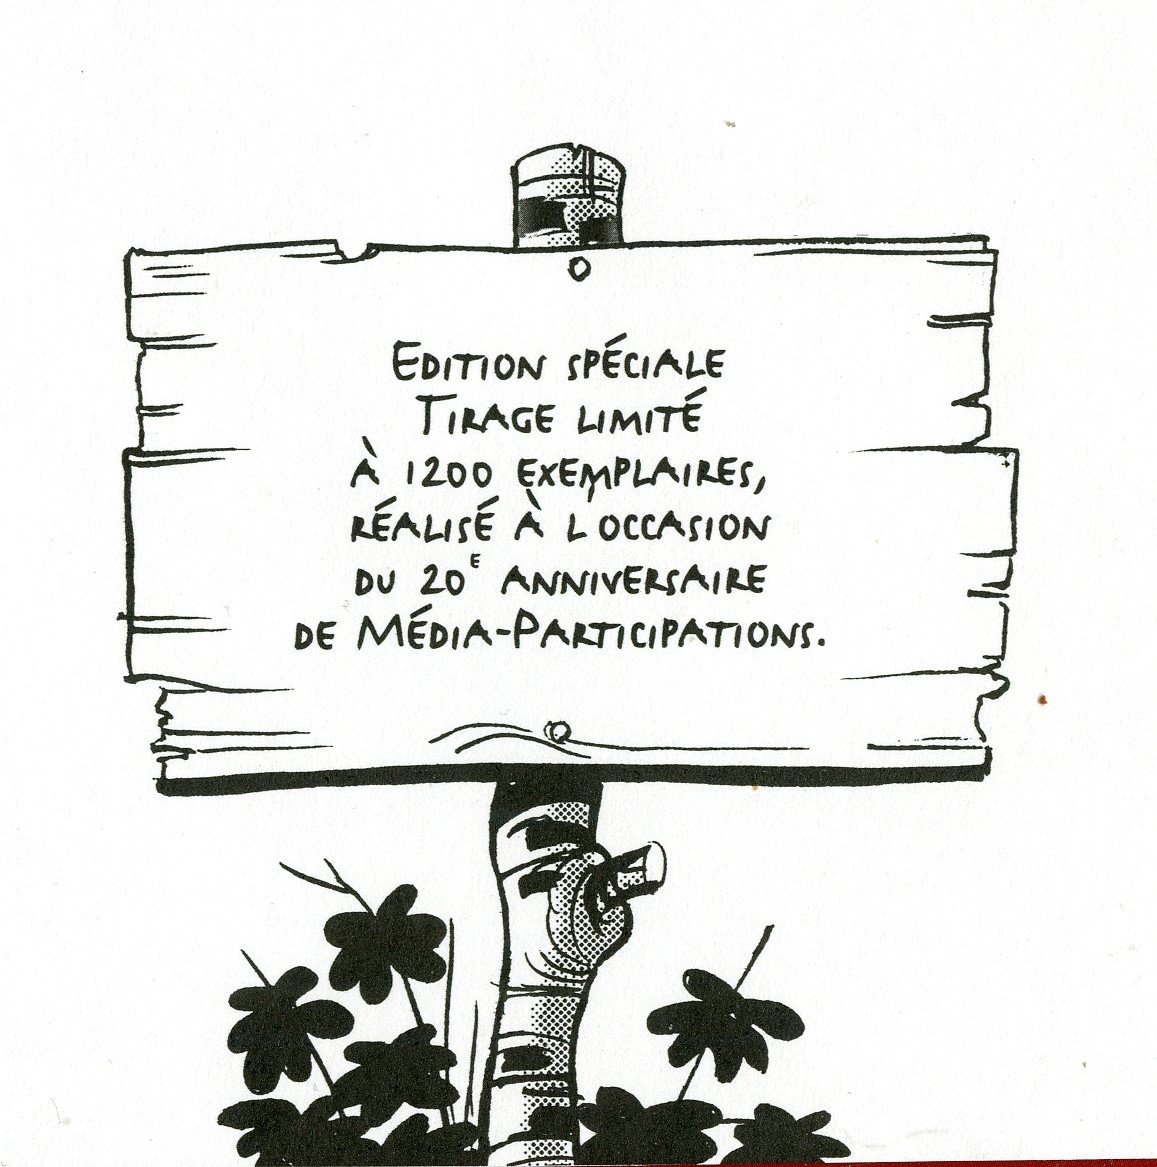 Edition spéciale
Tirage limité
à 1200 exemplaires,
réalisé à l'occasion
du 20e anniversaire
de Média-Participations.